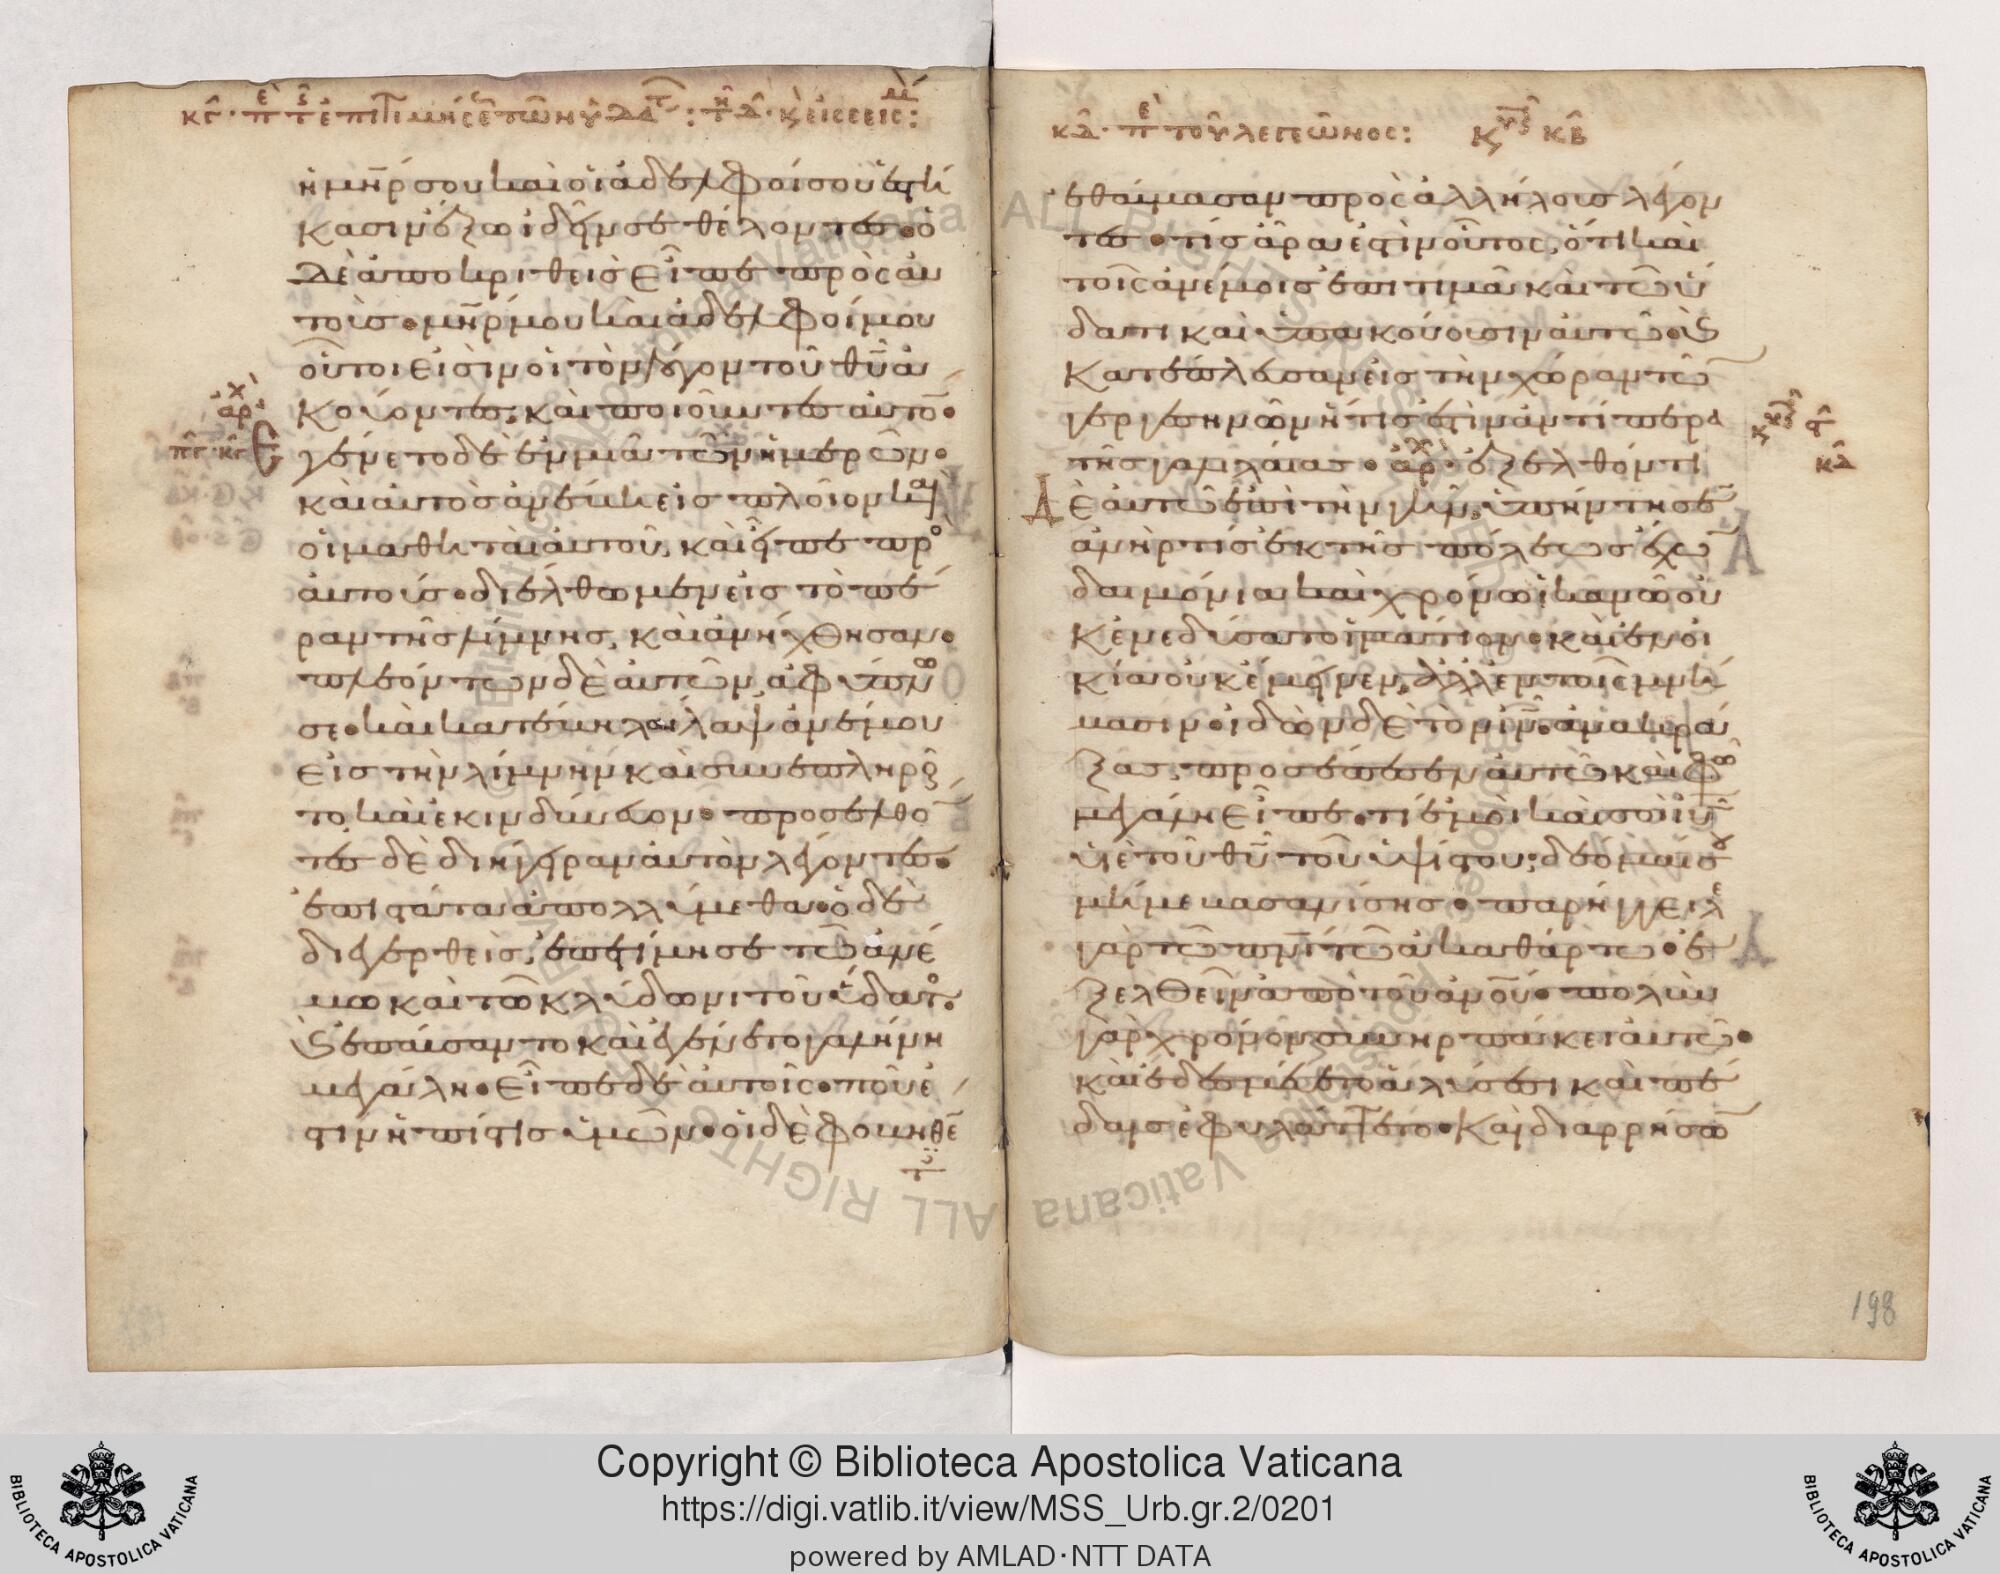 ἡ μη̅ρ σου καὶ οἱ ἀδελφοί σου ἑστή
κασιν ἔξω ἰδεῖν σε θέλοντες· ὁ
δὲ ἀποκριθεὶς εἶπε πρὸς αὐ
τούς· μη̅ρ μου καὶ ἀδελφοί μου
οὗτοι εἰσὶν οἱ τὸν λόγον τοῦ θυ̅ ἀ
κούοντες, καὶ ποιοῦντες αὐτόν·
ἐγένετο δὲ ἐν μιᾶ τῶν ἡμερῶν·
καὶ αὐτὸς ἀνέβη εἰς πλοῖον καὶ
οἱ μαθηταὶ αὐτοῦ, καὶ εἶπε πρὸς
αὐτούς· διέλθωμεν εἰς τὸ πέ
ραν τῆς λίμνης, καὶ ἀνήχθησαν·
πλεόντων δὲ αὐτῶν, ἀφύπνω
σε· καὶ κατέβη λαῖλαψ ἀνέμου
εἰς τὴν λίμνην καὶ συνεπληροῦ
το, καὶ ἐκινδύνευον· προσελθό
τες δὲ διήγειραν αὐτὸν λέγοντες·
ἐπιστάτα ἀπολλύμεθα· ὁ δὲ
διεγερθεὶς, ἐπετίμησε τῶ ἀνέ
μω καὶ τῶ κλύδωνι τοῦ ὕδατος·
καὶ ἐπαύσαντο καὶ ἐγένετο γαλήνη
μεγάλη· εἶπε δὲ αὐτοῖς· ποῦ ἐ
στιν ἡ πίστις ὑμῶν· οἱ δὲ φοβηθέ
κδ· πε τοῦ λεγεῶνος: κβ
ἐθαύμασαν πρὸς ἀλλήλους λέγον
τες· τίς ἄρα ἐστὶν οὗτος, ὅτι καὶ
τοῖς ἀνέμοις ἐπιτιμᾶ καὶ τῶ ὕ
δατι καὶ ὑπακούουσιν αὐτῶ· καὶ
κατέπλευσαν εἰς τὴν χώραν τῶ
γεργεσηνῶν ἥτις ἐστὶν ἀντίπερα
τῆς γαλιλαίας· ἀρχ· ἐξελθόντι
δὲ αὐτῶ ἐπὶ τὴν γῆν, ὑπήντησε
ἀνήρ τις ἐκ τῆς πόλεως ἔχω
δαιμόνια καὶ χρόνω ἱκανῶ οὐ
κ ἐνεδύσατο ἱμάτιον· καὶ ἐν οἰ
κία οὐκ ἔμεινεν, ἀλλ' ἐν τοῖς μνή
μασιν· ἰδὼν δὲ τὸν ιν̅· ἀνακρά
ξας, προσέπεσεν αὐτῶ καὶ φω
μεγάλη εἶπε· τί ἐμοὶ καὶ σοὶ ιυ̅
υἱὲ τοῦ θυ̅ τοῦ ὑψίστου; δέομαί σου
μή με βασανίσης· παρήγγειλε
γὰρ τῶ πνι̅ τῶ ἀκαθάρτω· ἐ
ξελθεῖν ἀπὸ τοῦ ἀνου̅· πολλοῖς
γὰρ χρόνοις συνηρπάκει αὐτόν·
καὶ ἐδεσμεῖτο ἁλύσεσι καὶ πέ
δαις ἐφυλάττετο· καὶ διαρρήσσω
198
Copyright © Biblioteca Apostolica Vaticana
https://digi.vatlib.it/view/MSS_Urb.gr.2/0201
powered by AMLAD·NTT DATA
BIBLIOTECA APOSTOLICA VATICANA
BIBLIOTECA APOSTOLICA VATICANA